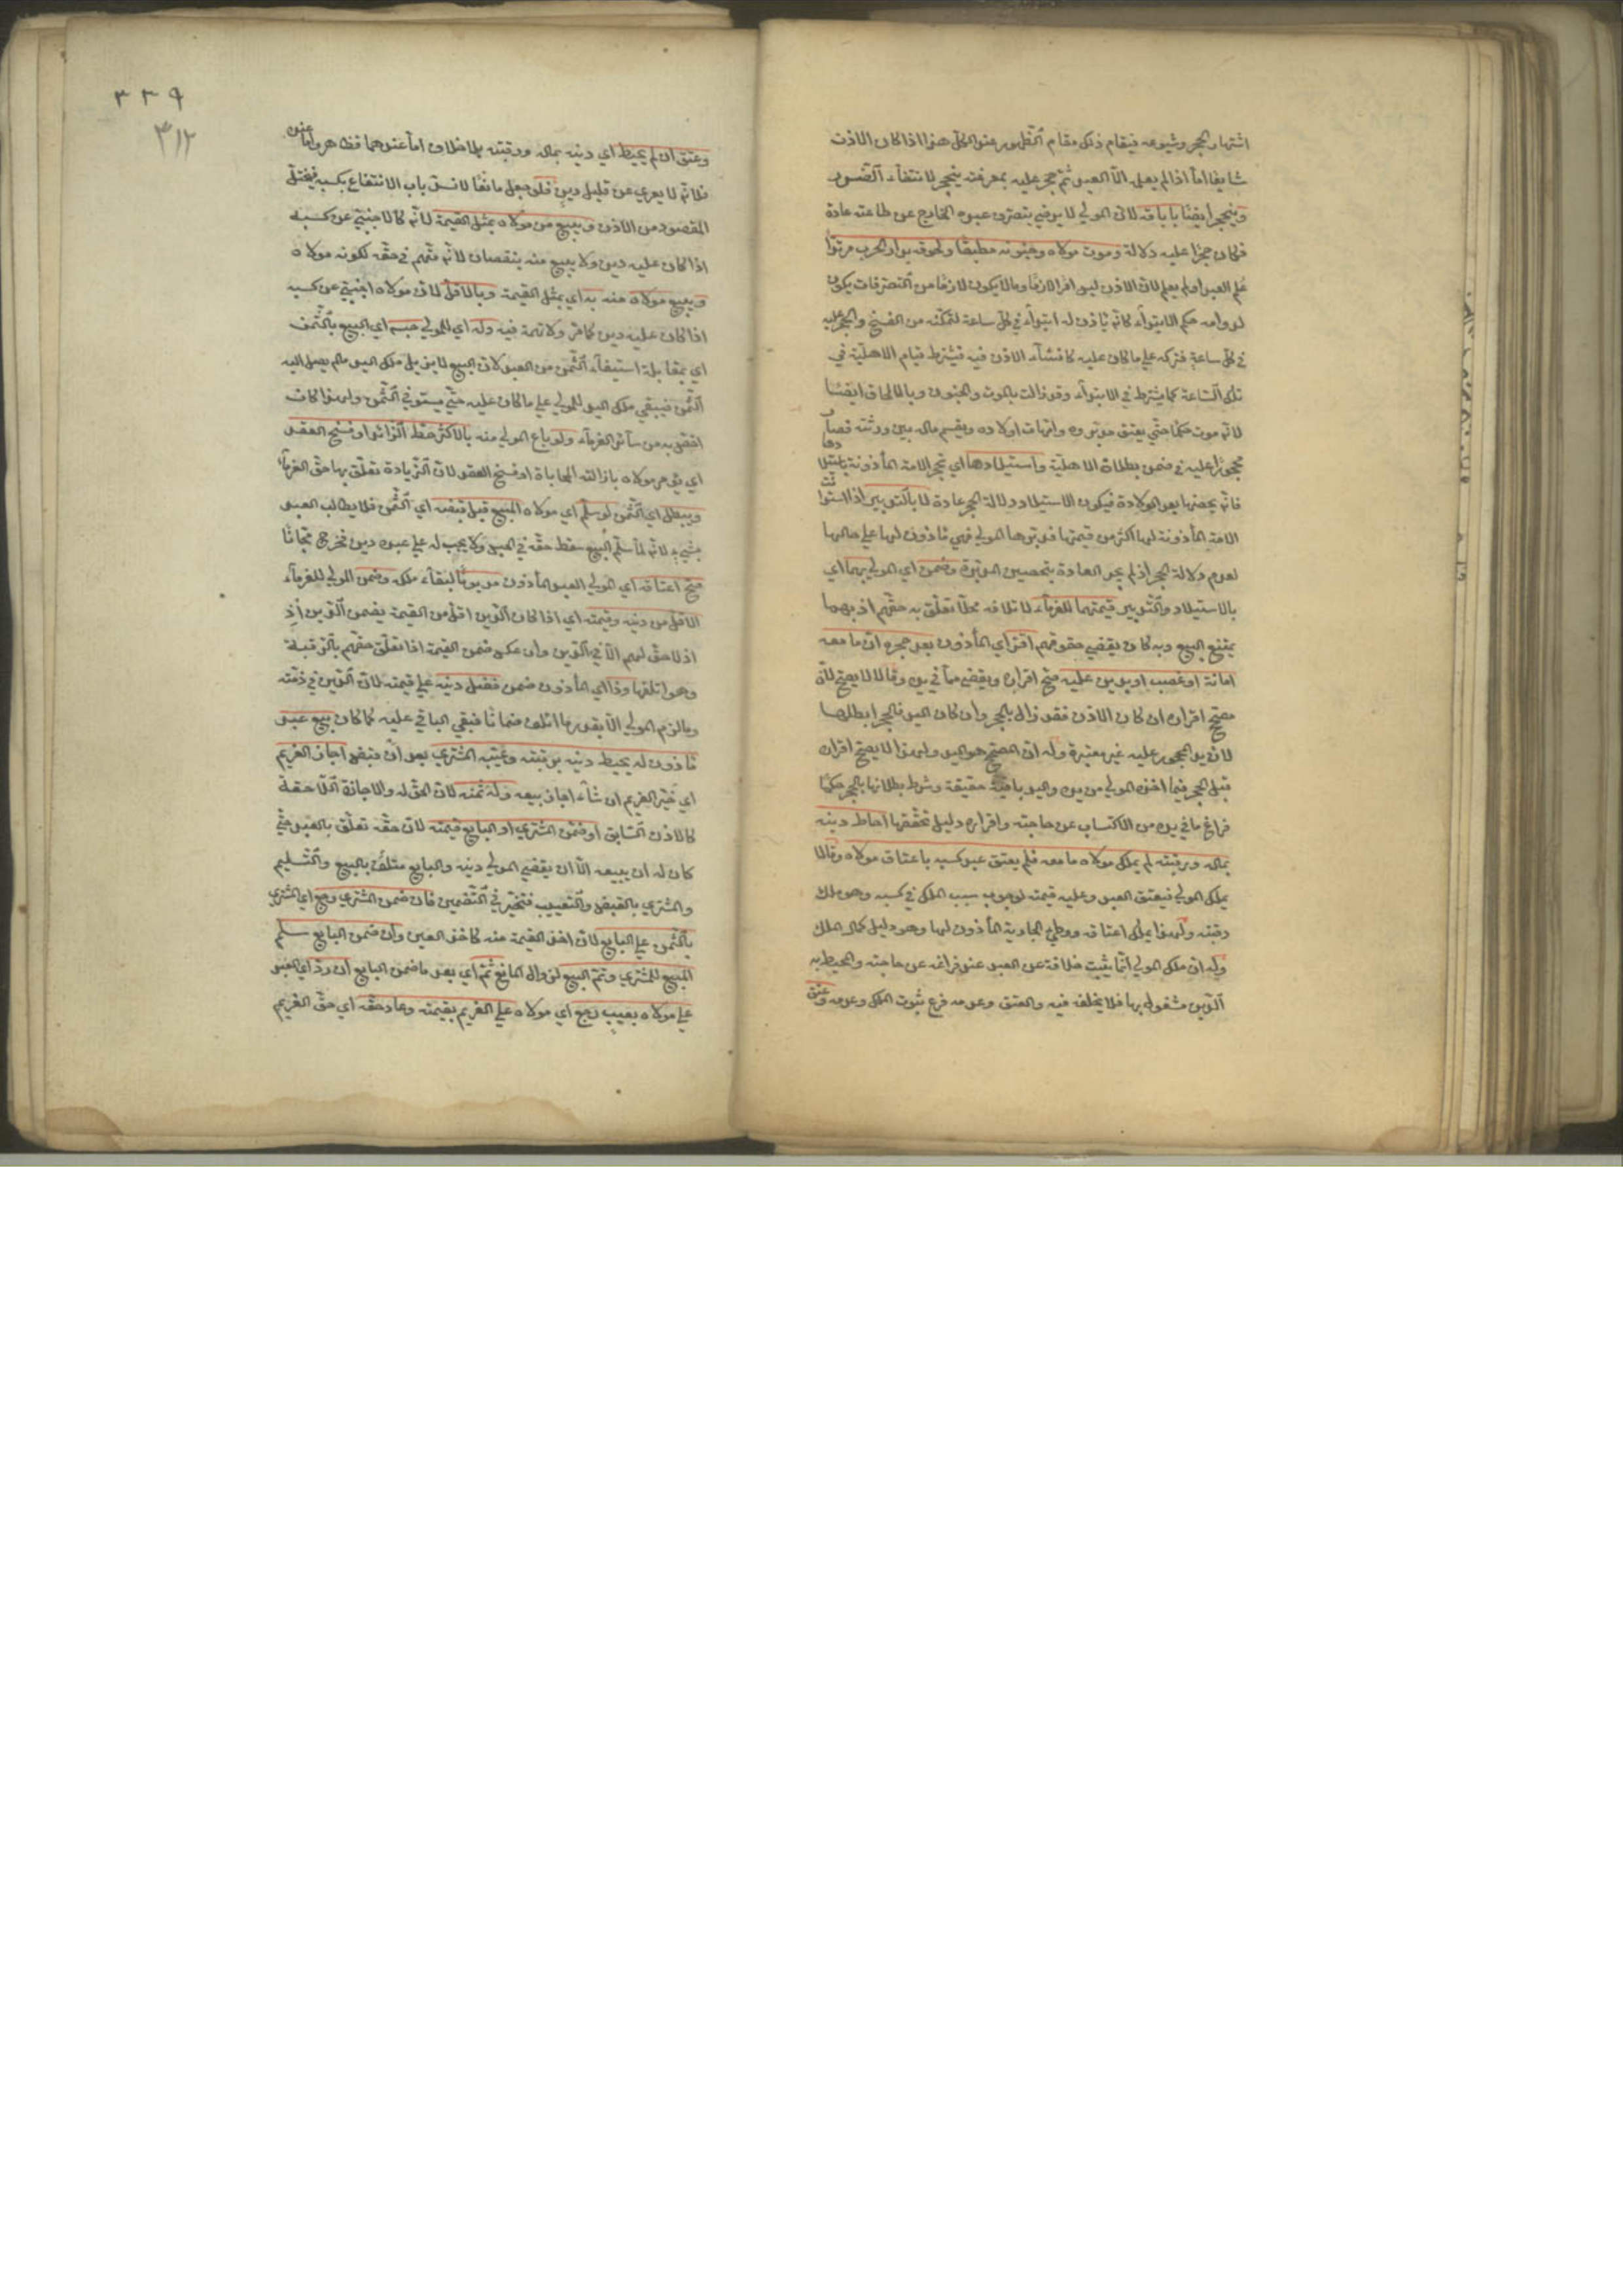 اشتهار الحجر وشيوعه فيقام ذلك مقام الظهور عند الكل هذا اذا كان الاذن
شايعا اما اذا لم يعلم الا العبد ثم حجر عليه بمعرفته ينحجر لانتفاء الضرر
وينحجر ايضا باباقه لان المولى لا يرضى بتصرف عبده الخارج عن طاعته عادة
فكان حجرا عليه دلالة وموت مولاه وجنونه مطبقا ولحوقه بدار الحرب مرتدا
علم العبد او لم يعلم لان الاذن ليس امرا لازما وما لا يكون لازما من التصرفات يكون
لدوامه حكم الابتداء كانه ياذن له ابتداء في كل ساعة لتمكنه من الفسخ والحجر عليه
في كل ساعة فتركه على ما كان عليه كانشاء الاذن فيه فيشترط قيام الاهلية في
تلك الساعة كما يشترط في الابتداء وقد زالت بالموت والجنون وبالالحاق ايضا
لانه موت حكما حتى يعتق مدبروه وامهات اولاده ويقسم ماله بين ورثته فصار
محجورا عليه في ضمن بطلان الاهلية واستيلادها اي تحجر الامة المأذونة باستيلادها
فانه يحصنها بعد الولادة فيكون الاستيلاد دلالة الحجر عادة لا بالتدبير اذا استدانت
الامة المأذونة لها اكثر من قيمتها فدبرها المولى فهي مأذون لها على حالها
لعدم دلالة الحجر اذ لم يجر العادة بتحصين المدبرة وضمن اي المولى بهما اي
بالاستيلاد والتدبير قيمتهما للغرماء لاتلافه محلا تعلق به حقهم اذ بهما
يمتنع البيع وبه كان يقضي حقوقهم اقر اي المأذون بعد حجره ان ما معه
امانة او غصب او بدين عليه صح اقراره ويقضى مما في يده وقالا لا يصح لان
مصحح اقراره ان كان الاذن فقد زال بالحجر وان كان اليد فالحجر ابطلها
لان يد المحجور عليه غير معتبرة وله ان المصحح هو اليد ولهذا لا يصح اقراره
قبل الحجر فيما اخذه المولى من يده واليد باقية حقيقة وشرط بطلانها بالحجر حكما
فراغ ما في يده من الاكتساب عن حاجته واقراره دليل تحققها احاط دينه
بماله ورقبته لم يملك مولاه ما معه فلم يعتق عبد كسبه باعتاق مولاه وقالا
يملك المولى فيعتق العبد وعليه قيمته لوجود سبب الملك في كسبه وهو ملك
رقبته ولهذا يملك اعتاقه ووطئ الجارية المأذون لها وهو دليل كمال الملك
وله ان ملك المولى انما يثبت خلافة عن العبد عند فراغه عن حاجته والمحيط به
الدين مشغول بها فلا يخلفه فيه والعتق وعدمه فرع ثبوت الملك وعدمه وعتق
٣٣٩
٣١٢
وعتق ان لم يحيط اي دينه بماله ورقبته بلا خلاف اما عندهما فظاهر واما عنده
فلانه لا يعرى عن قليل دين فلو جعل مانعا لانسد باب الانتفاع بكسبه فيختل
المقصود من الاذن ويبيع من مولاه بمثل القيمة لانه كالاجنبي عن كسبه
اذا كان عليه دين ولا يبيع منه بنقصان لانه متهم في حقه لكونه مولاه
ويبيع مولاه منه به اي بمثل القيمة وبالاقل لان مولاه اجنبي عن كسبه
اذا كان عليه دين كما مر ولا تهمة فيه وله اي للمولى حبسه اي المبيع بالثمن
اي بمقابلة استيفاء الثمن من العبد لان البيع لا يزيل ملك اليد ما لم يصل اليه
الثمن فيبقى ملك اليد للمولى على ما كان عليه حتى يستوفي الثمن ولهذا كان
اخص به من سائر الغرماء ولو باع المولى منه بالاكثر حط الزائد او فسخ العقد
اي يؤمر مولاه بازالته المحاباة او فسخ العقد لان الزيادة تعلق بها حق الغرماء
ويبطل اي الثمن لو سلم اي مولاه المبيع قبل قبضه اي الثمن فلا يطالب العبد
بشيء لانه لما سلم المبيع سقط حقه في الحبس ولا يجب له على عبده دين فخرج مجانا
صح اعتاقه اي المولى العبد المأذون مديونا لبقاء ملكه وضمن المولى للغرماء
الاقل من دينه وقيمته اي اذا كان الدين اقل من القيمة يضمن الدين اذ
اذ لا حق لهم الا في الدين وان عكس ضمن القيمة اذا تعلق حقهم بالرقبة
وهو اتلفها وذا اي المأذون ضمن فضل دينه على قيمته لان الدين في ذمته
وما لزم المولى الا بقدر ما اتلف ضمانا فبقي الباقي عليه كما كان بيع عبد
مأذون له يحيط دينه برقبته وغيبه المشتري بعد ان قبض اجاز الغريم
اي خير الغريم ان شاء اجاز بيعه وله ثمنه لان الحق له والاجازة اللاحقة
كالاذن السابق او ضمن المشتري او البايع قيمته لان حقه تعلق بالعبد حتى
كان له ان يبيعه الا ان يقضي المولى دينه والبايع متلف بالبيع والتسليم
والمشتري بالقبض والتغييب فتخير في التضمين فان ضمن المشتري رجع اي المشتري
بالثمن على البايع لان اخذ القيمة منه كاخذ العين وان ضمن البايع سلم
المبيع للمشتري وتم البيع لزوال المانع ثم اي بعد ما ضمن البايع ان رد اي العبد
على مولاه بعيب رجع اي مولاه على الغريم بقيمته وعاد حقه اي حق الغريم